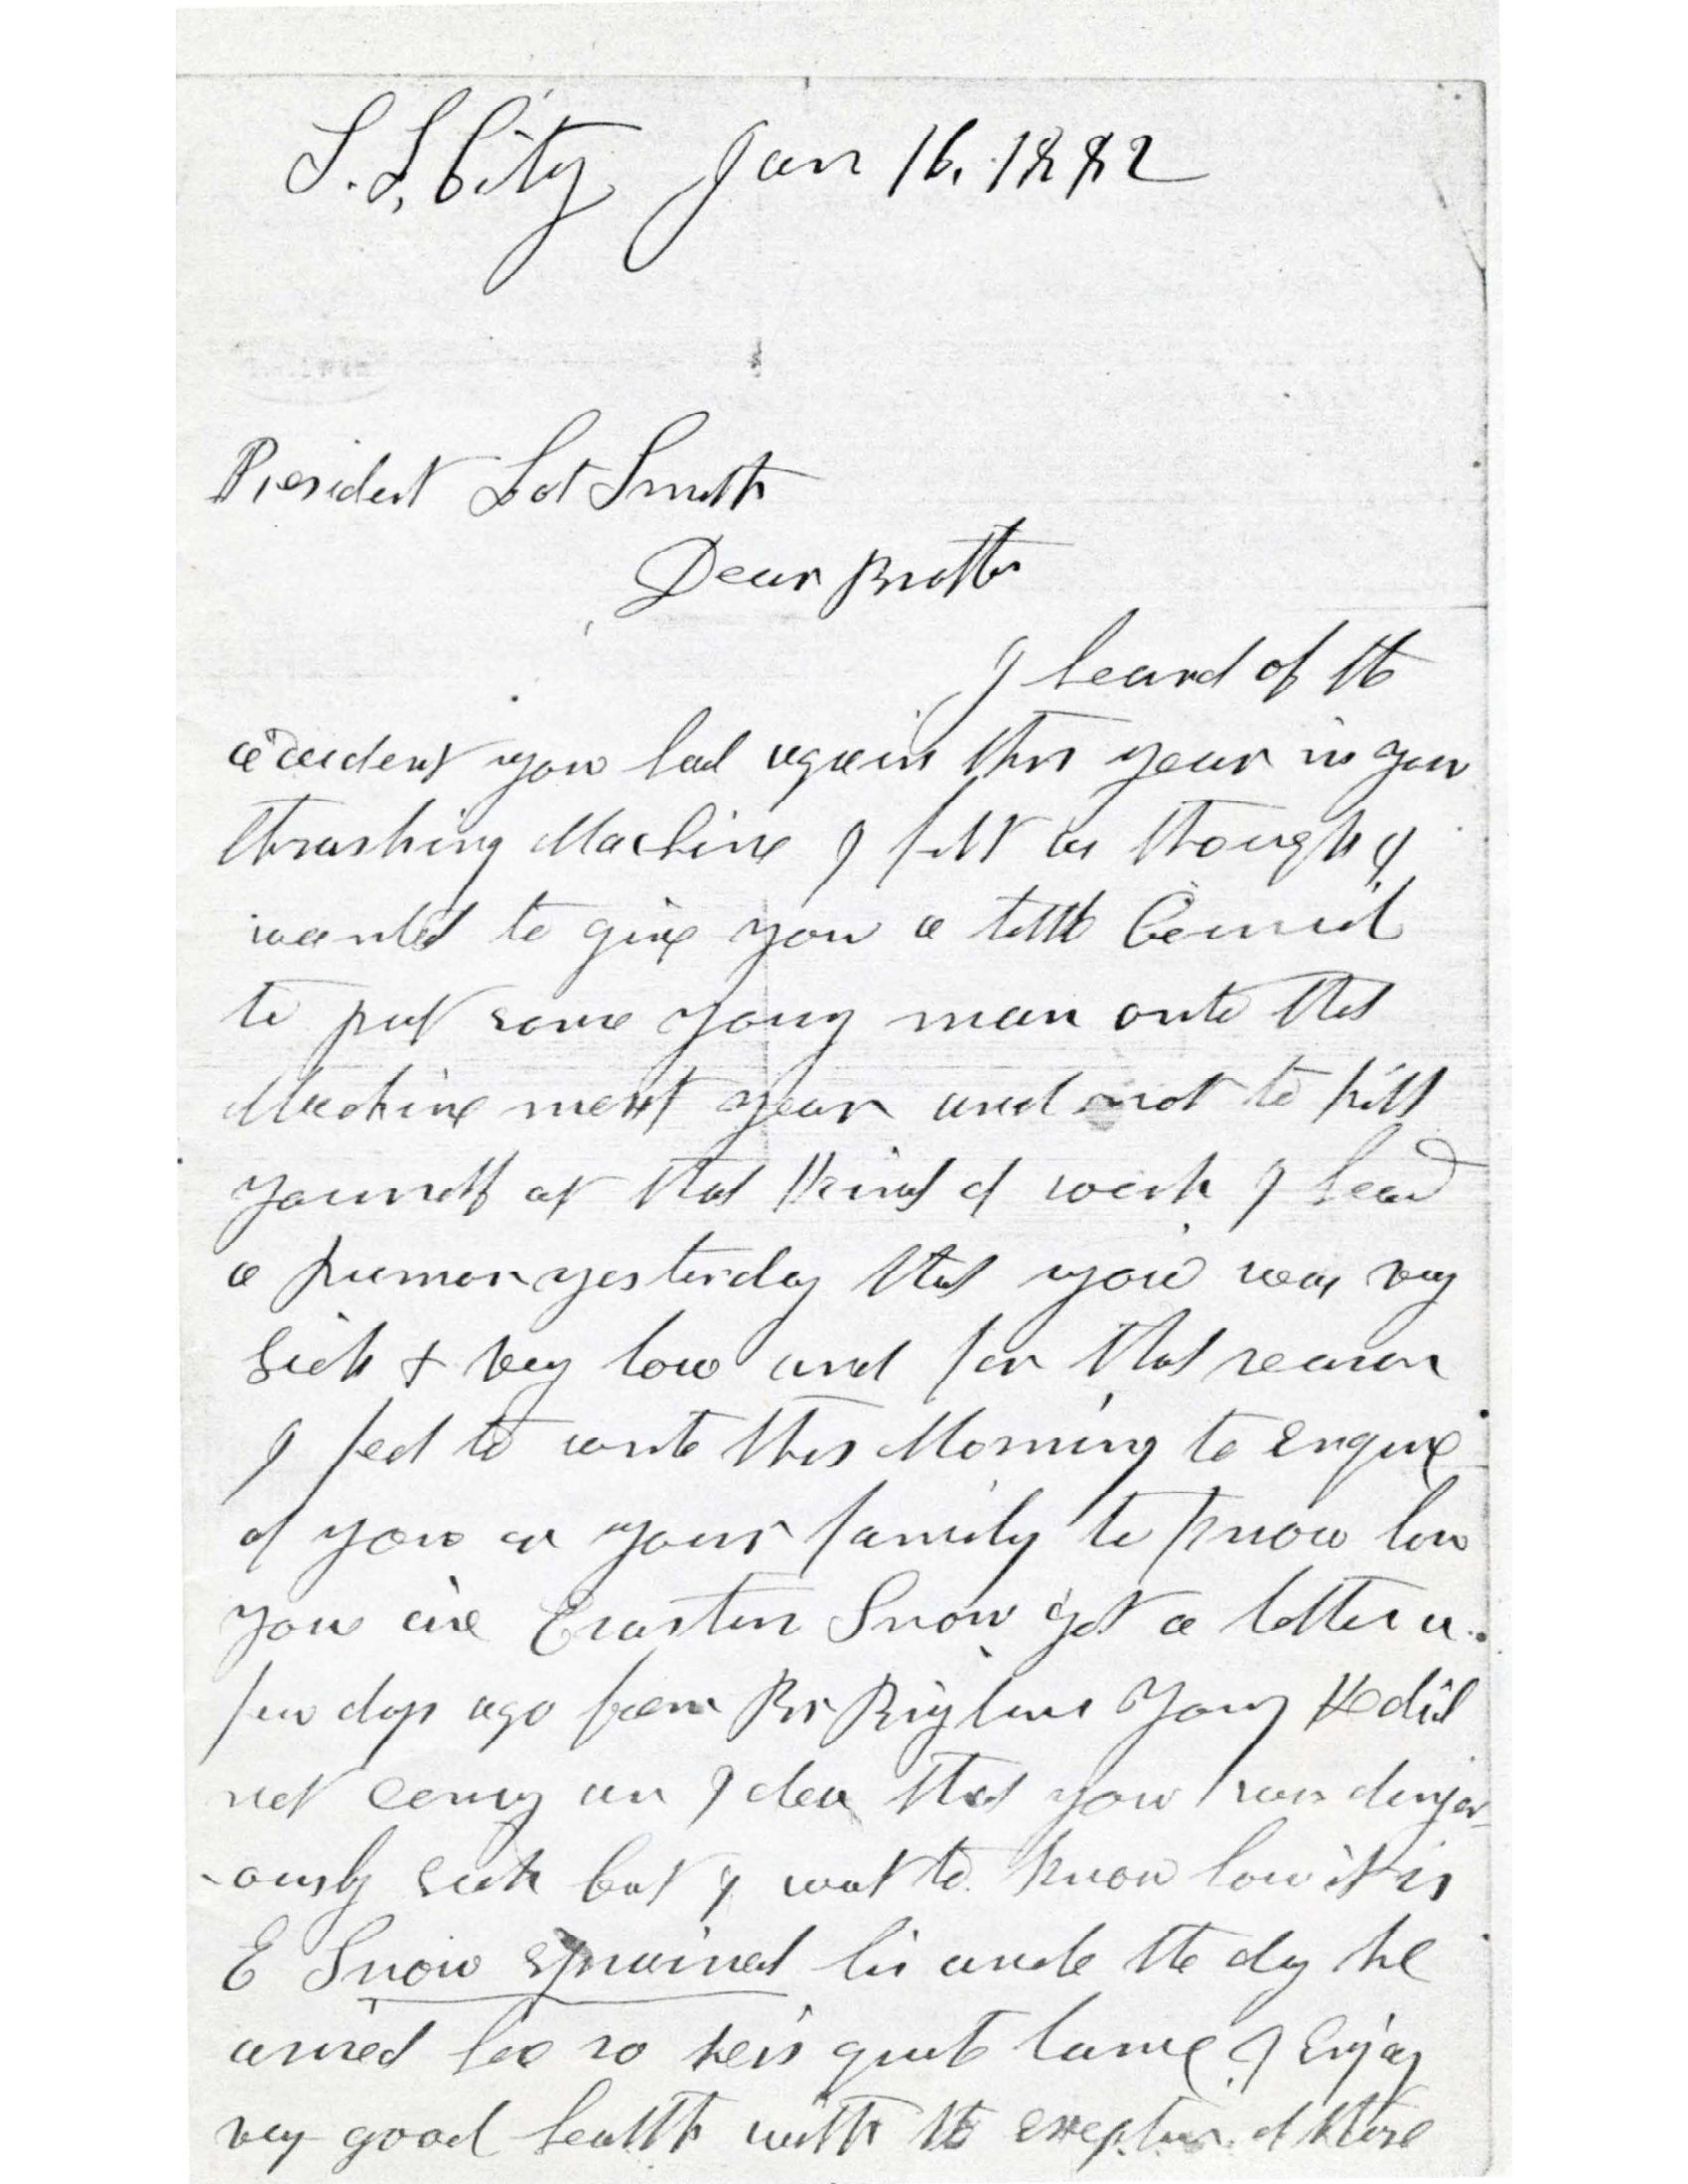 S. L. City Jan 16, 1882
President Lot Smith
Dear Brother
I heard of the
accident you had again this year in your
thrashing Machine I felt as though I
wanted to give you a little Council
to put some young man onto that
Machine next year and not to kill
yourself at that kind of work I heard
a rumor yesterday that you was very
sick & very low and for that reason
I feel to write this Morning to enquire
of you or your family to know how
you are Erastus Snow got a letter a
few days ago from Br Brigham Young He did
not convey an Idea that you was danger-
-ously sick but I want to know how it is
E Snow sprained his ancle the day he
arived here so he is quite lame I Enjoy
very good health with the exception of